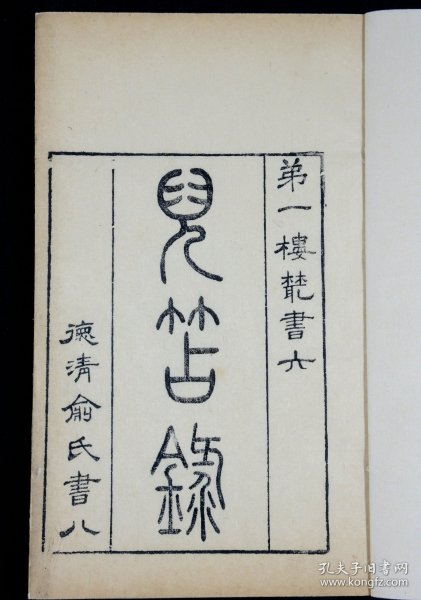 弟一樓叢書六
兒笘錄
德清俞氏書八
孔夫子旧书网
www.kongfz.com